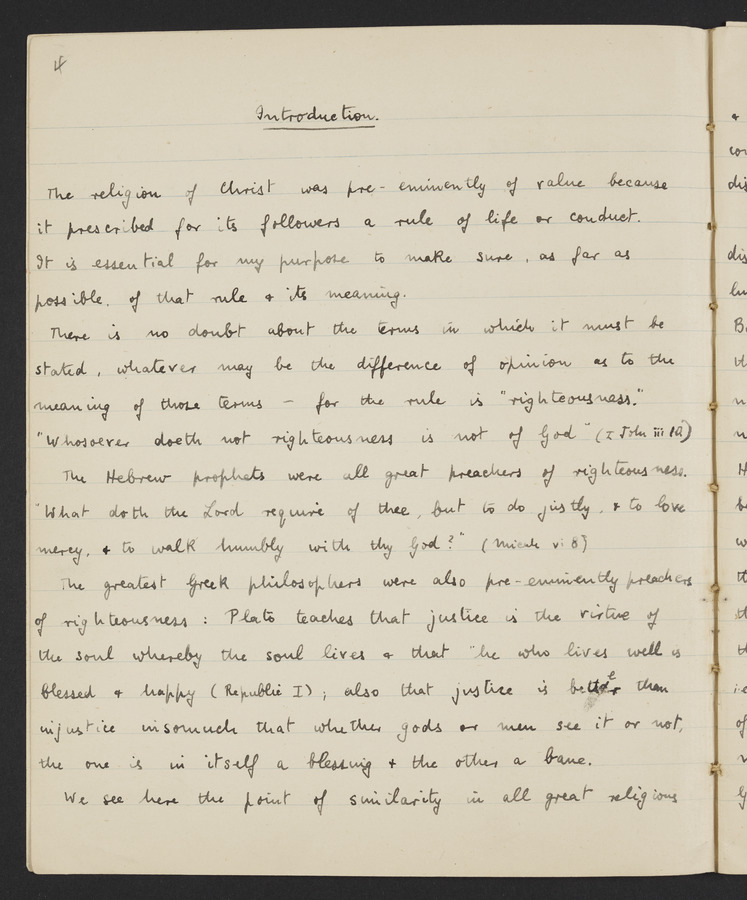 4
Introduction.
The religion of Christ was pre-eminently of value because
it prescribed for its followers a rule of life or conduct.
It is essential for my purpose to make sure, as far as
possible, of that rule & its meaning.
There is no doubt about the terms in which it must be
stated, whatever may be the difference of opinion as to the
meaning of those terms - for the rule is "righteousness."
"Whosoever doeth not righteousness is not of God" (I John iii 10)
The Hebrew prophets were all great preachers of righteousness.
"What doth the Lord require of thee, but to do justly, & to love
mercy, & to walk humbly with thy God?" (Micah vi 8)
The greatest Greek philosophers were also pre-eminently preachers
of righteousness : Plato teaches that justice is the virtue of
the soul whereby the soul lives & that "he who lives well is
blessed & happy (Republic I) ; also that justice is better than
injustice insomuch that whether gods or men see it or not,
the one is in itself a blessing & the other a bane.
We see here the point of similarity in all great religions